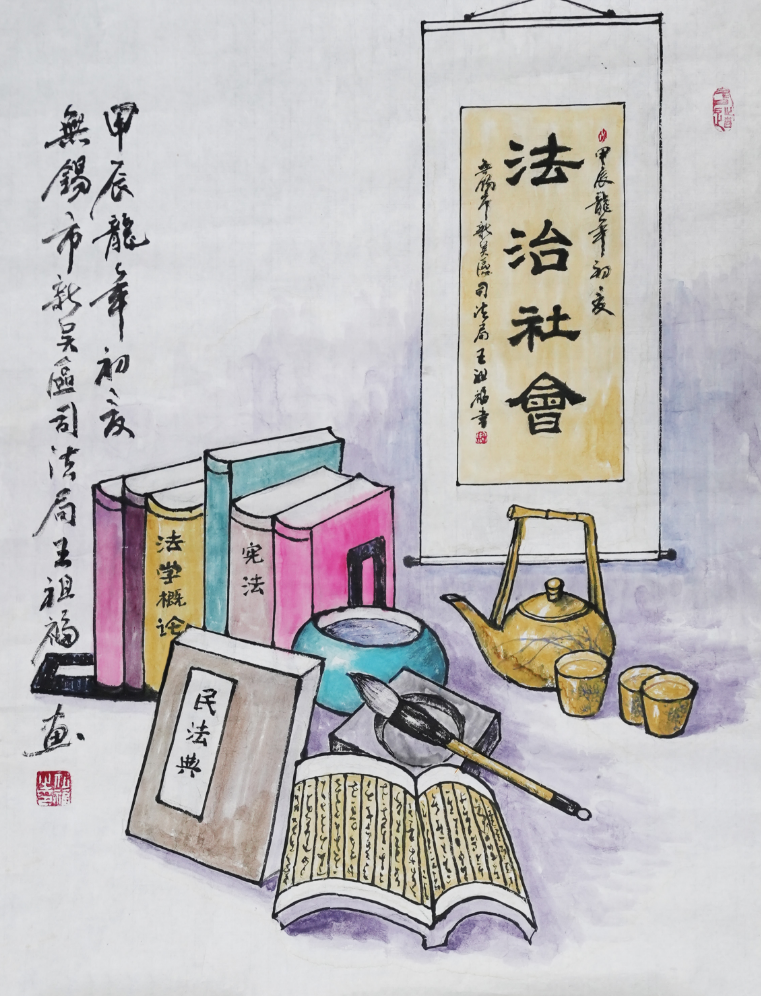 甲辰龍年初夏
無錫市新吴區司法局王祖福
画
甲辰龍年初夏
法治社會
無锡市新吴區司法局王祖福書
法学概论
宪法
民法典